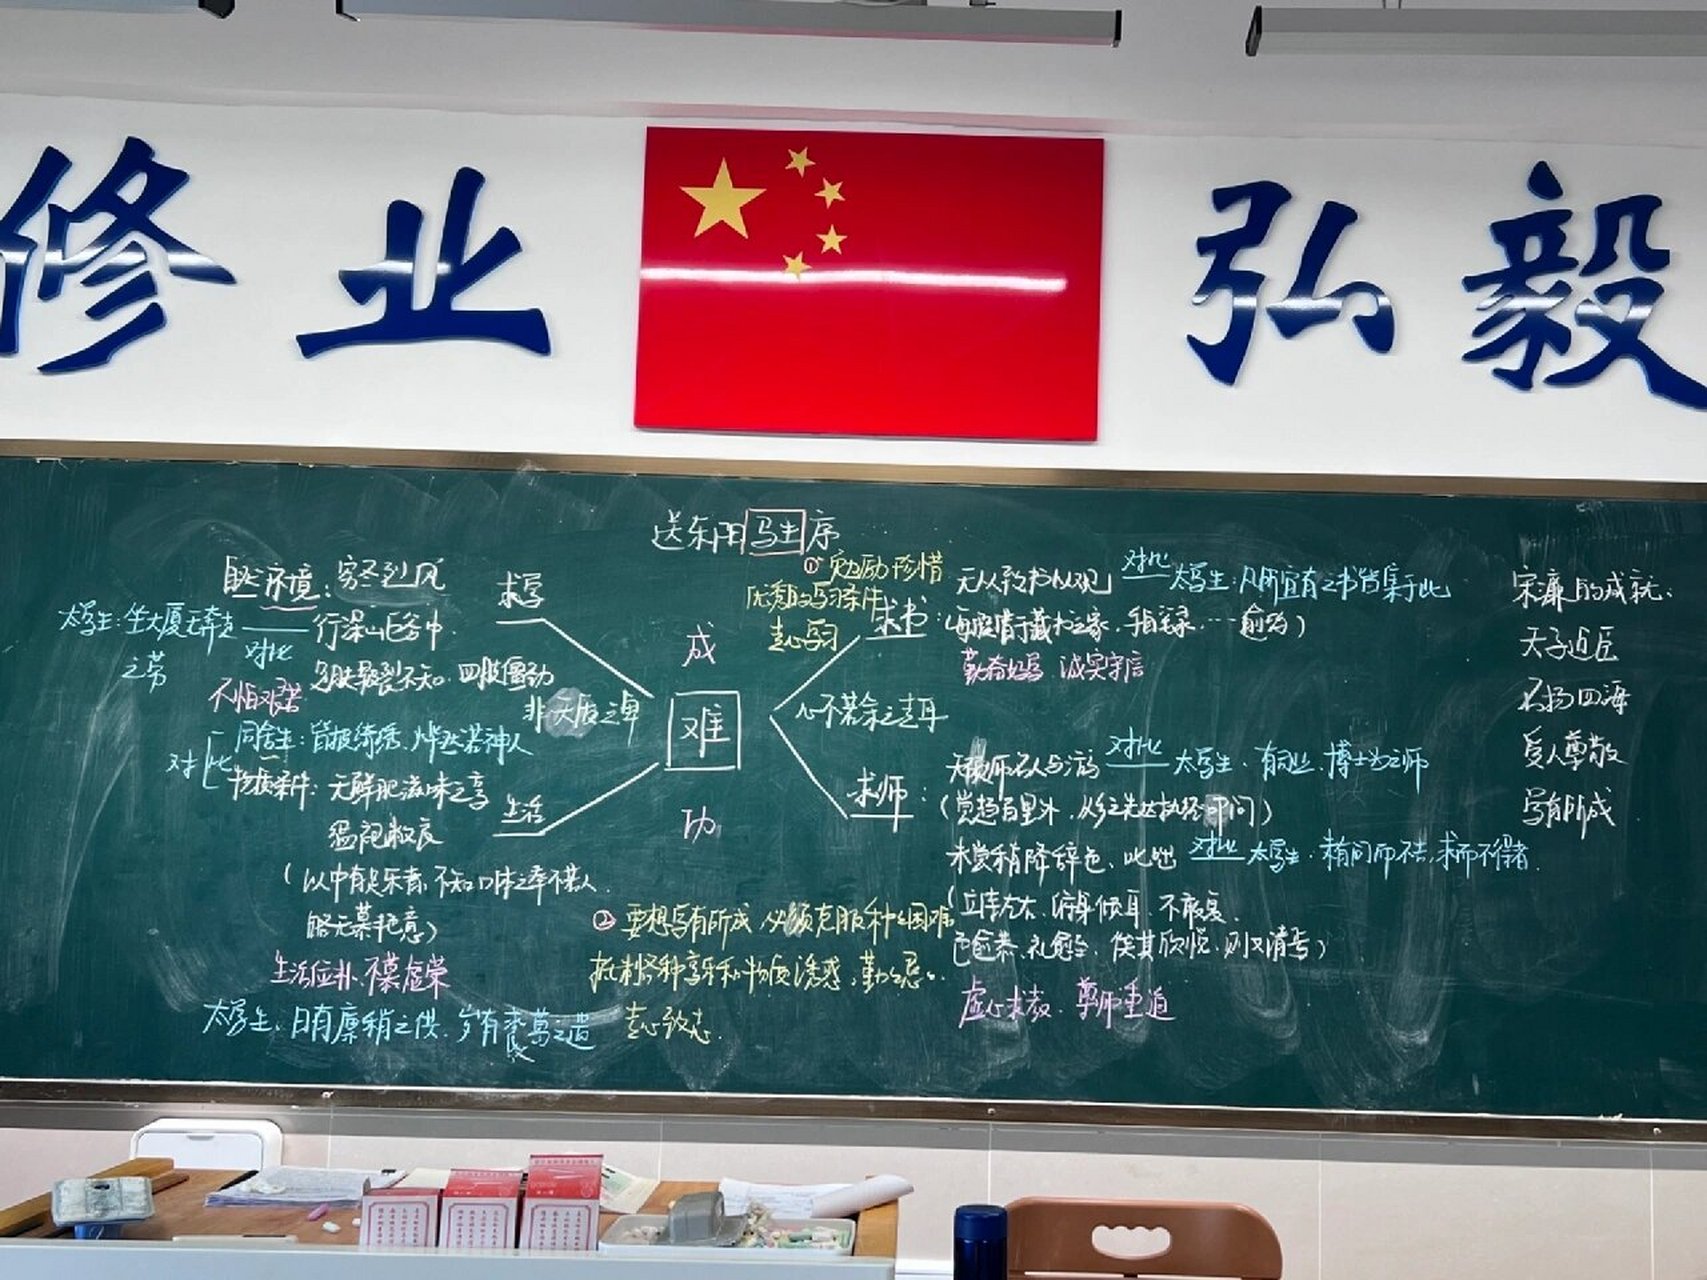 修业 弘毅
送东阳马生序
①勉励珍惜
优越的学习条件
专心学习
自然环境：穷冬烈风
太学生：坐大厦无奔走
之劳
对比
行深山巨谷中
不怕艰苦
足肤皲裂不知，四肢僵劲
求学
非天质之卑
对比
同舍生：皆被绮绣，烨然若神人
物质条件：无鲜肥滋味之享
缊袍敝衣
生活
（以中有足乐者，不知口体之奉不若人
略无慕艳意）
生活俭朴、不慕虚荣
太学生：日有廪稍之供，岁有裘葛之遗
成
难
功
求书：
无从致书以观
对比
太学生：凡所宜有之书皆集于此
（每假借于藏书之家，手自笔录，…逾约）
勤奋好学 诚实守信
心不若余之专耳
求师：
无硕师名人与游
对比
太学生：有司业、博士为之师
（尝趋百里外，从乡之先达执经叩问）
未尝稍降辞色
对比
太学生：未有问而不告，求而不得者
（立侍左右、俯身倾耳、不敢复
色愈恭、礼愈至、俟其欣悦、则又请焉）
虚心求教、尊师重道
②要想学有所成，必须克服种种困难
抵制各种享乐和物质诱惑，勤
专心致志.
宋濂的成就：
天子近臣
名扬四海
受人尊敬
学有所成